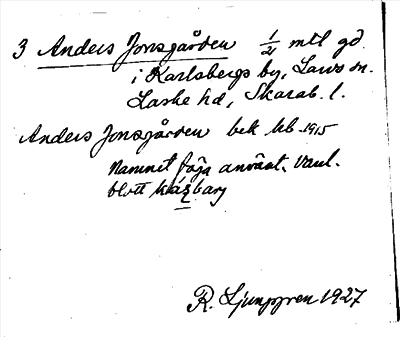 3 Anders Jonsgården 1/2 mtl gd.
i Karlsbergs by, Larvs sn.
Laske hd, Skarab. l.
Anders Jonsgården bek kb. 1915
Namnet föga använt. Vanl.
blott
R. Ljunggren 1927